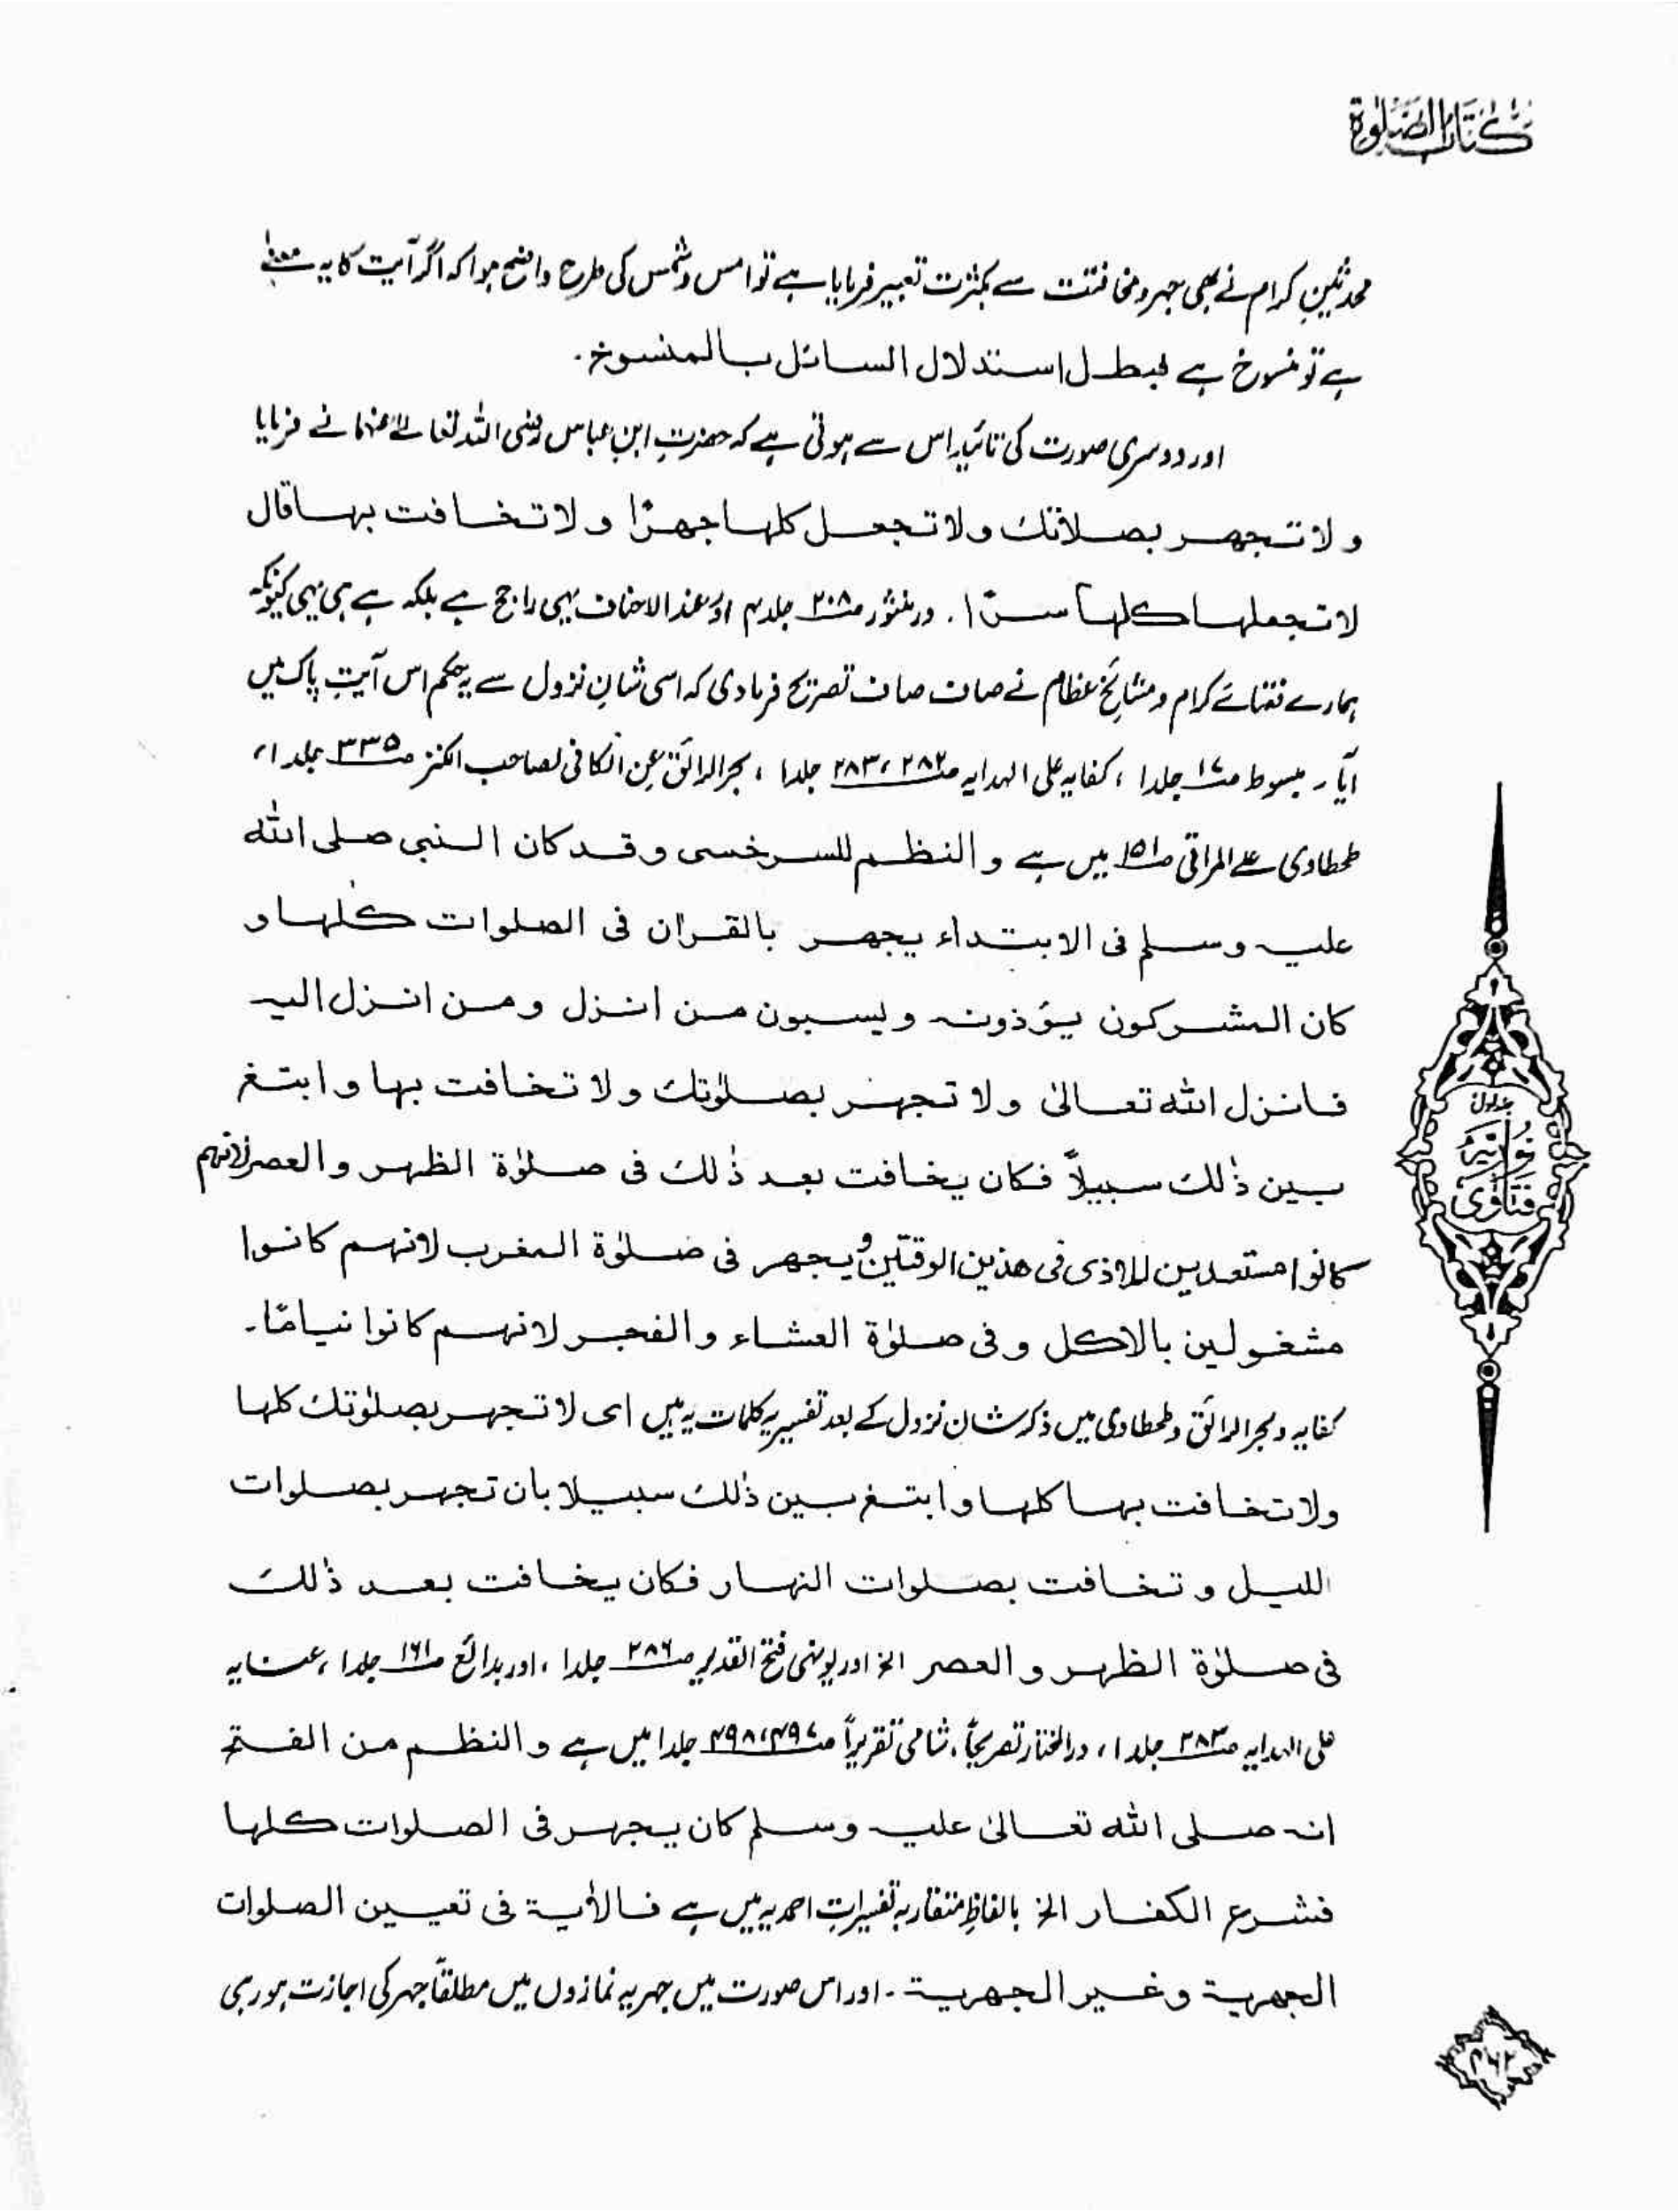 كتاب الصلوة
محدثین کرام نے بھی جہر و مخافتت سے بکثرت تعبیر فرمایا ہے تو امس و شمس کی طرح واضح ہوا کہ اگر آیت کا یہ معنٰے
ہے تو منسوخ ہے فبطل استدلال السائل بالمنسوخ۔
اور دوسری صورت کی تائید اس سے ہوتی ہے کہ حضرتِ ابنِ عباس رضی اللہ تعالےٰ عنہما نے فرمایا
ولا تجهر بصلاتك ولا تجعل كلها جهرًا ولا تخافت بها قال
لا تجعلها كلها سرًّا۔ درمنثور ص۲۰۸ جلد ۴ اور عند الاحناف یہی راجح ہے بلکہ ہے ہی یہی کیونکہ
ہمارے فقہائے کرام و مشائخِ عظام نے صاف صاف تصریح فرما دی کہ اسی شانِ نزول سے یہ حکم اس آیتِ پاک میں
آیا۔ مبسوط ص۱۷ جلد ۱، کفایہ علی الہدایہ ص۲۸۲، ۲۸۳ جلد ۱، بحر الرائق عن الکافی لصاحب الکنز ص۳۳۵ جلد ۱،
طحطاوی علے المراقی ص۱۵۱ میں ہے والنظم للسرخسی وقد كان النبی صلی الله
علیہ وسلم فی الابتداء یجهر بالقراٰن فی الصلوات كلها و
كان المشركون یؤذونہ ویسبون من انزل ومن انزل الیہ
فانزل الله تعالیٰ ولا تجهر بصلوٰتك ولا تخافت بها وابتغ
بین ذٰلك سبیلاً فكان یخافت بعد ذٰلك فی صلوٰة الظهر والعصر لانهم
كانوا مستعدین للاذی فی هذین الوقتین ویجهر فی صلوٰة المغرب لانهم كانوا
مشغولین بالاكل وفی صلوٰة العشاء والفجر لانهم كانوا نیامًا۔
کفایہ و بحر الرائق و طحطاوی میں ذکر شان نزول کے بعد تفسیریہ کلمات یہ ہیں ای لا تجهر بصلوٰتك كلها
ولا تخافت بها كلها وابتغ بین ذٰلك سبیلا بان تجهر بصلوات
اللیل وتخافت بصلوات النهار فكان یخافت بعد ذٰلك
فی صلوٰة الظهر والعصر الخ اور یونہی فتح القدیر ص۲۸۶ جلد ۱، اور بدائع ص۱۶۱ جلد ۱، عنایہ
علی الہدایہ ص۲۸۳ جلد ۱، درالمختار تصریحاً، شامی تقریراً ص۴۹۷، ۴۹۸ جلد ۱ میں ہے والنظم من الفتح
انہ صلی الله تعالیٰ علیہ وسلم كان یجهر فی الصلوات كلها
فشرع الكفار الخ بالفاظِ متقاربہ تفسیراتِ احمدیہ میں ہے فالاٰیة فی تعیین الصلوات
الجهریة وغیر الجهریة۔ اور اس صورت میں جہریہ نمازوں میں مطلقاً جہر کی اجازت ہو رہی
جلد اول
فتاوٰی نوریہ
۴۶۲